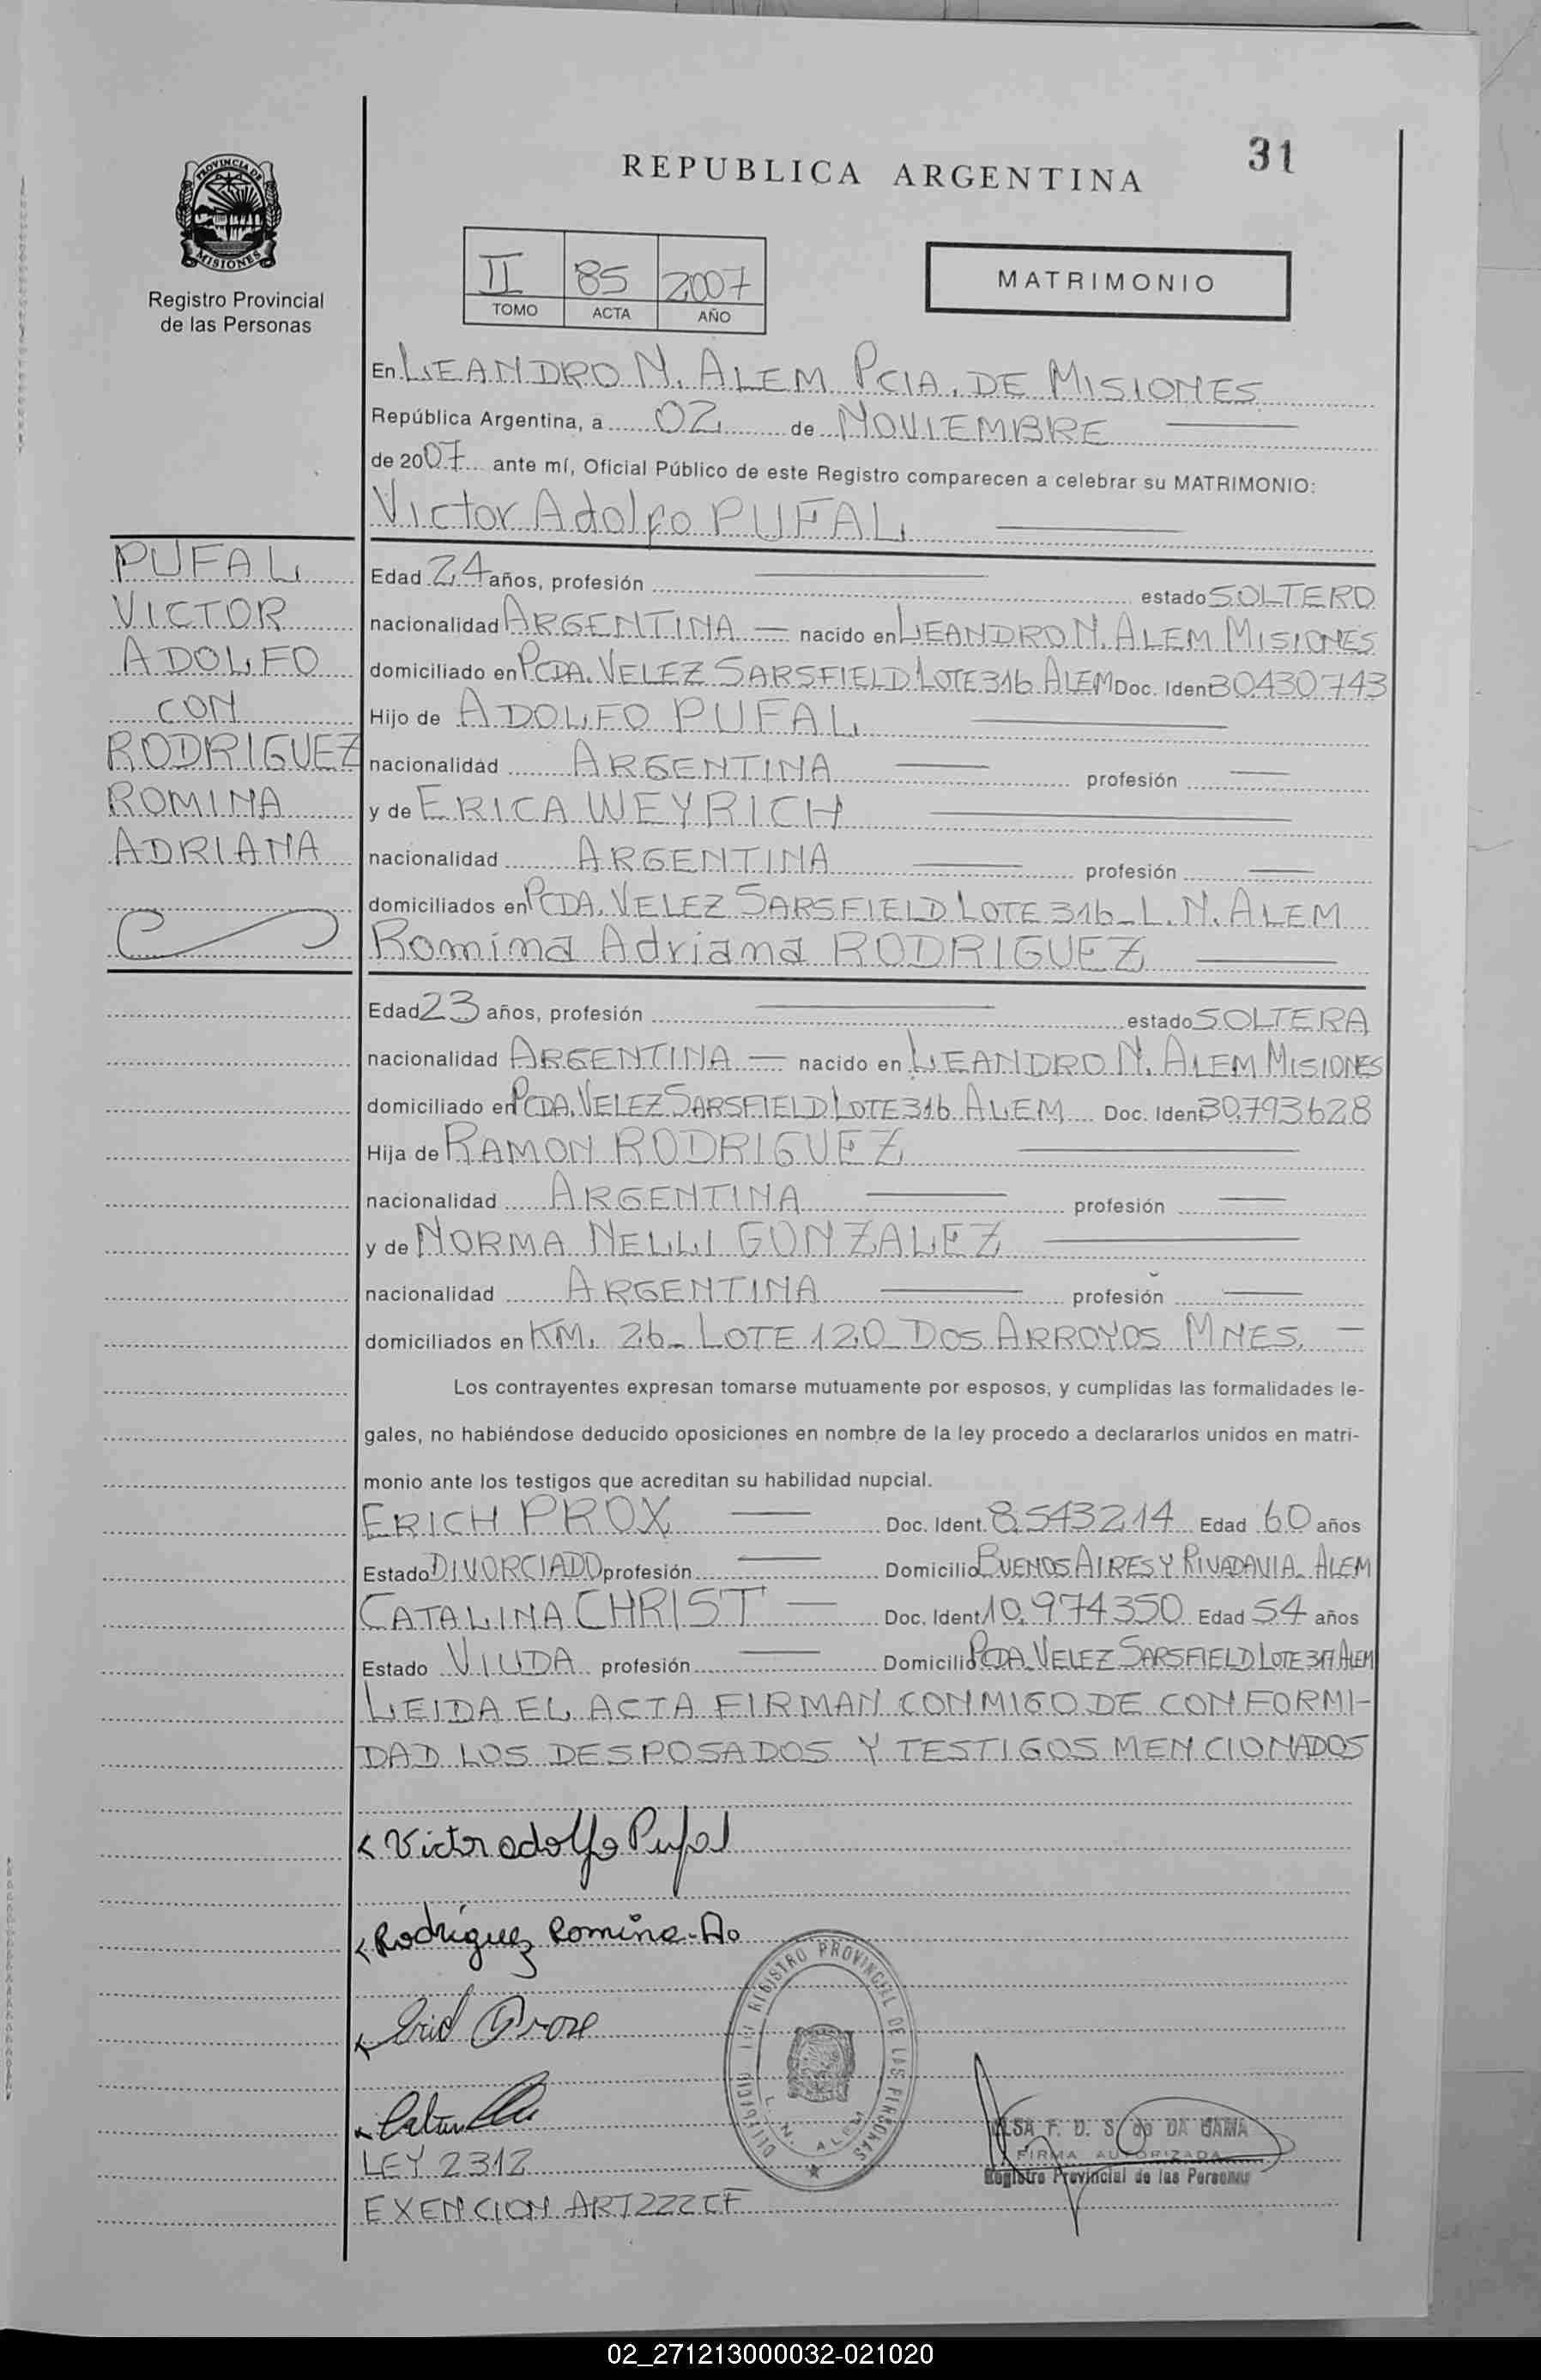 31
REPUBLICA ARGENTINA
PROVINCIA DE MISIONES
Registro Provincial
de las Personas
II 85 2007
TOMO ACTA AÑO
MATRIMONIO
En LEANDRO N. ALEM PCIA. DE MISIONES
República Argentina, a 02 de NOVIEMBRE
de 2007 ante mí, Oficial Público de este Registro comparecen a celebrar su MATRIMONIO:
Victor Adolfo PUFAL
PUFAL
VICTOR
ADOLFO
CON
RODRIGUEZ
ROMINA
ADRIANA
Edad 24 años, profesión estado SOLTERO
nacionalidad ARGENTINA — nacido en LEANDRO N. ALEM MISIONES
domiciliado en PCDA. VELEZ SARSFIELD LOTE 316 ALEM Doc. Iden 30430743
Hijo de ADOLFO PUFAL
nacionalidad ARGENTINA profesión
y de ERICA WEYRICH
nacionalidad ARGENTINA profesión
domiciliados en PCDA. VELEZ SARSFIELD LOTE 316 - L. N. ALEM
Romina Adriana RODRIGUEZ
Edad 23 años, profesión estado SOLTERA
nacionalidad ARGENTINA — nacido en LEANDRO N. ALEM MISIONES
domiciliado en PCDA. VELEZ SARSFIELD LOTE 316 ALEM Doc. Ident 30.793.628
Hija de RAMON RODRIGUEZ
nacionalidad ARGENTINA profesión
y de NORMA NELLI GONZALEZ
nacionalidad ARGENTINA profesión
domiciliados en KM. 26 - LOTE 120 - DOS ARROYOS MNES. —
Los contrayentes expresan tomarse mutuamente por esposos, y cumplidas las formalidades le-
gales, no habiéndose deducido oposiciones en nombre de la ley procedo a declararlos unidos en matri-
monio ante los testigos que acreditan su habilidad nupcial.
ERICH PROX — Doc. Ident. 8.543214 Edad 60 años
Estado DIVORCIADO profesión — Domicilio BUENOS AIRES Y RIVADAVIA - ALEM
CATALINA CHRIST — Doc. Ident 10.974350 Edad 54 años
Estado VIUDA profesión — Domicilio PCDA. VELEZ SARSFIELD LOTE 317 ALEM
LEIDA EL ACTA FIRMAN CONMIGO DE CONFORMI-
DAD LOS DESPOSADOS Y TESTIGOS MENCIONADOS
Victor adolfo Pufal
Rodriguez Romina
REGISTRO PROVINCIAL DE LAS PERSONAS
L. N. ALEM
ELSA F. D. S. de DA GAMA
FIRMA AUTORIZADA
Registro Provincial de las Personas
LEY 2312
EXENCION ART 222 CF
02_271213000032-021020